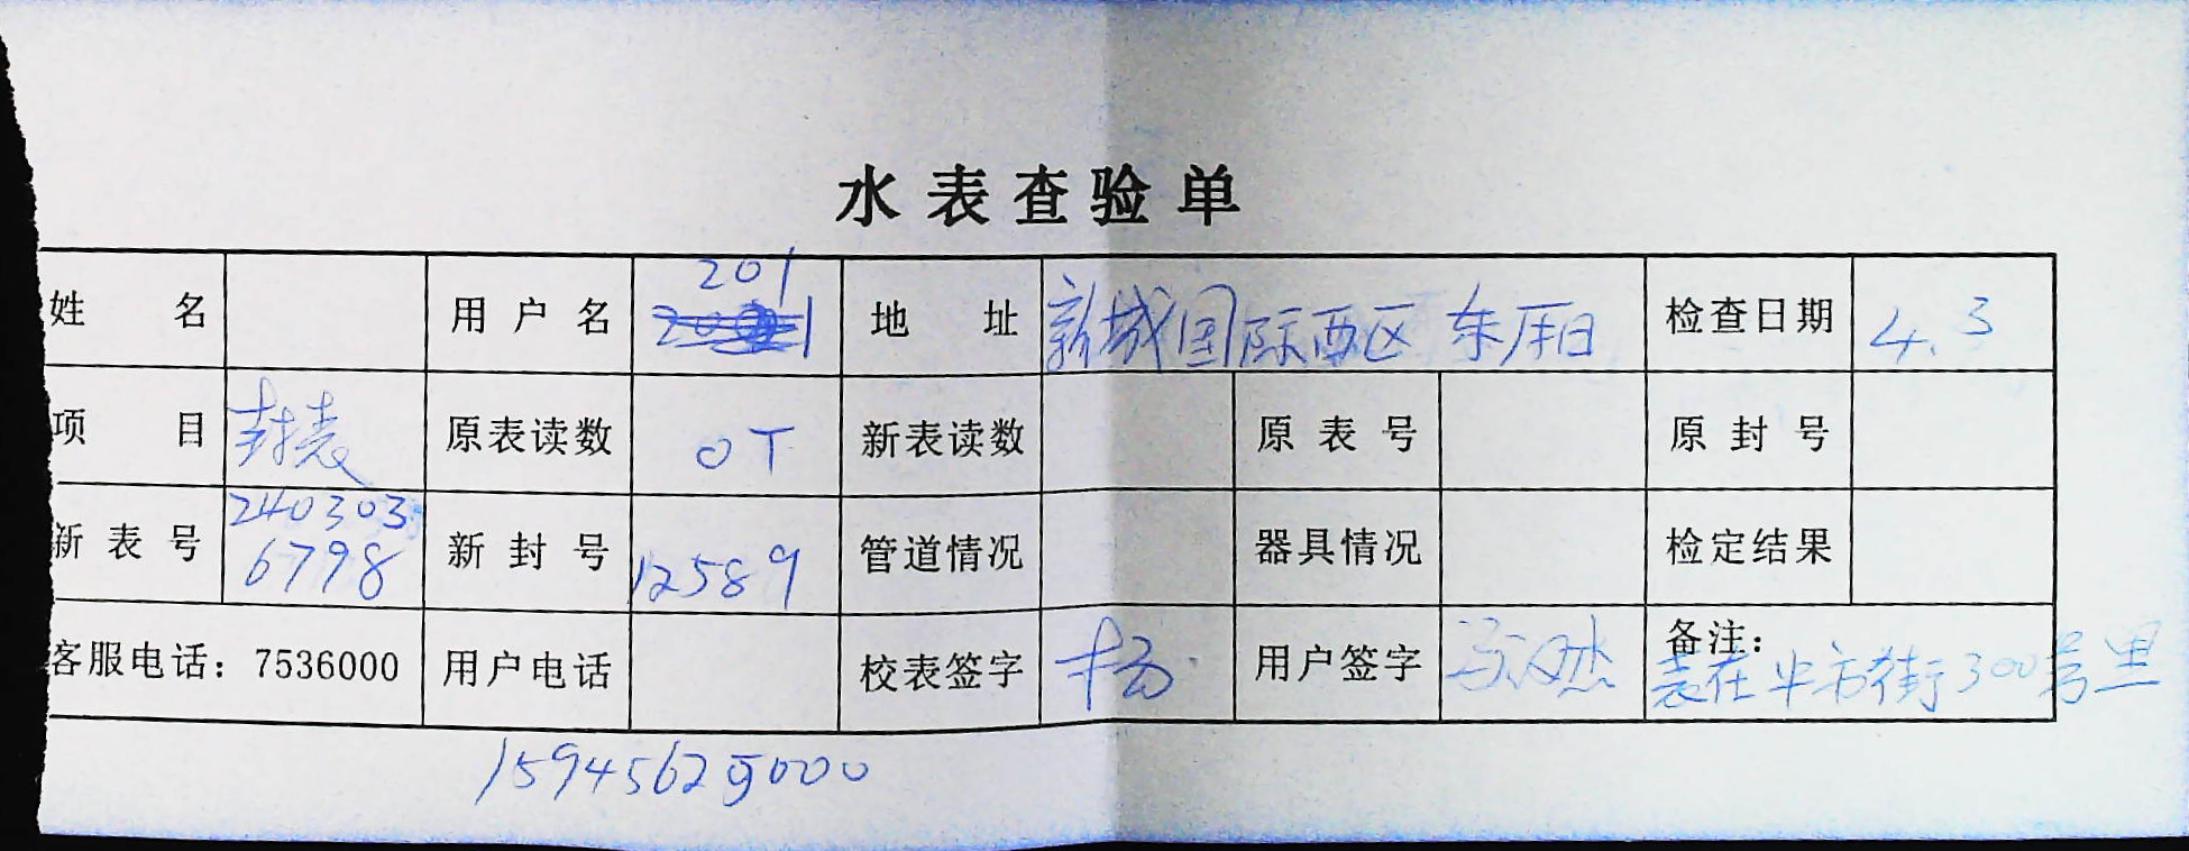 水表查验单
姓名 用户名 201 地址 新城国际西区 东厢 检查日期 4.3
项目 封表 原表读数 0T 新表读数 原表号 原封号
新表号 2403036798 新封号 12589 管道情况 器具情况 检定结果
客服电话：7536000 用户电话 校表签字 杨 用户签字 备注：表在 街300号里
15945625000